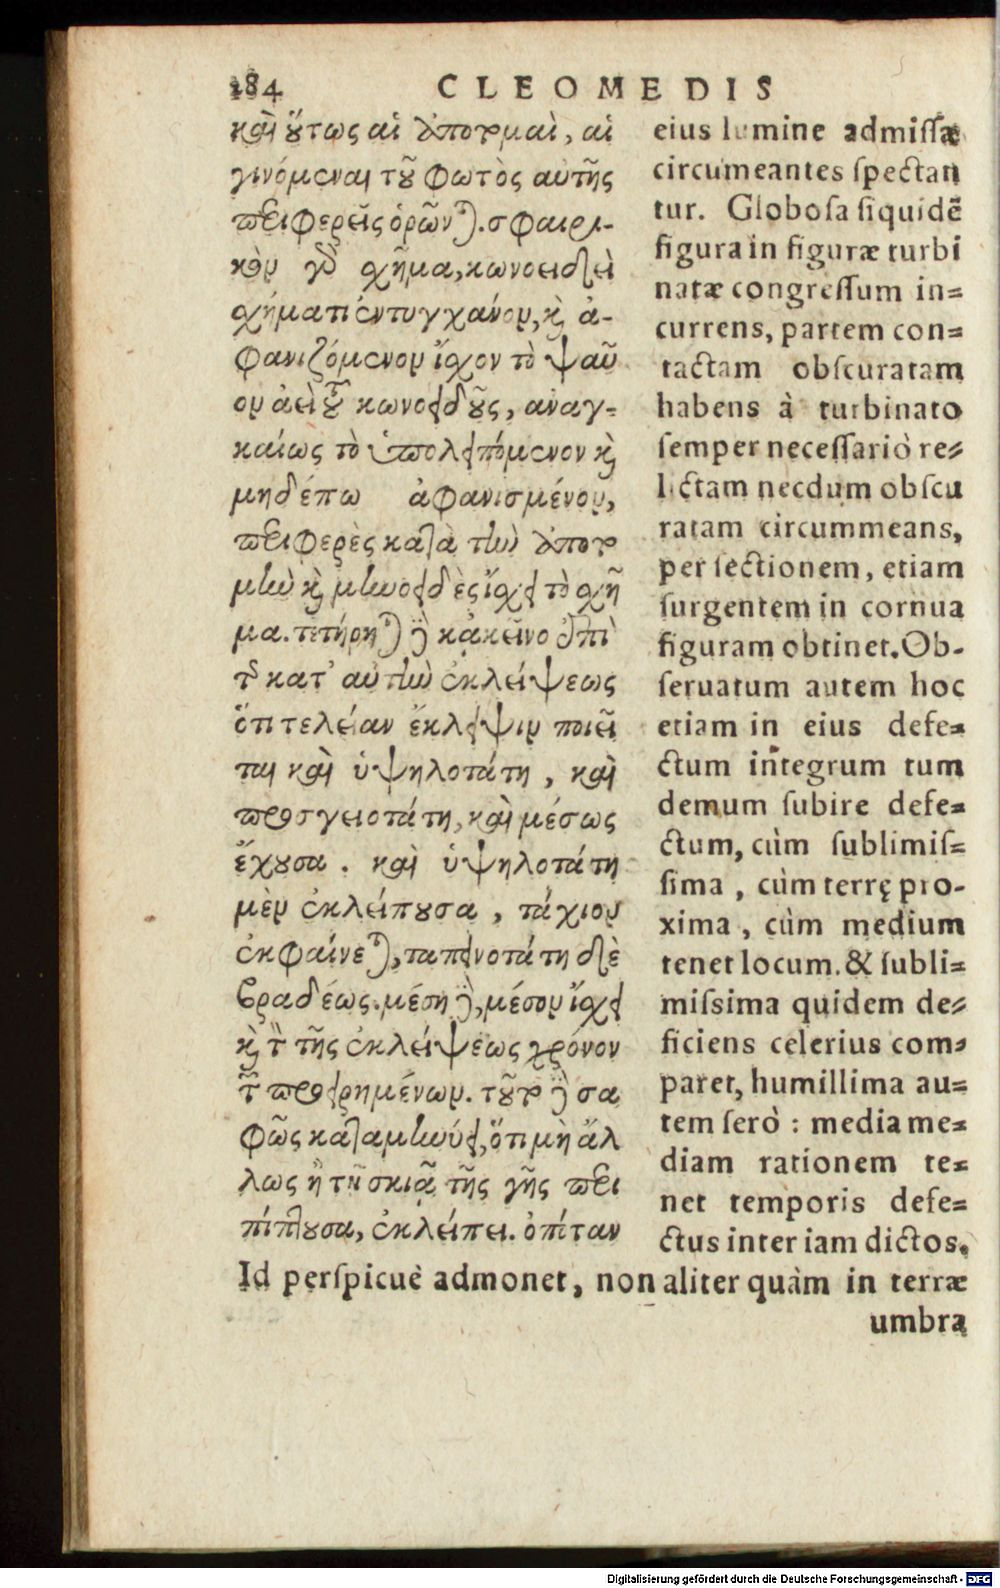 184 CLEOMEDIS
καὶ ὅτως αἱ ἀποτομαὶ, αἱ
γινόμεναι τοῦ φωτὸς αὐτῆς
περιφερεῖς ὁρῶνται. σφαιρι-
κὸν γὰρ σχῆμα, κωνοειδεῖ
σχήματι ἐντυγχάνον, καὶ ἀ-
φανιζόμενον ἴσχον τὸ ψαῦ
ον ἀεὶ τοῦ κωνοειδοῦς, αναγ-
καίως τὸ ὑπολειπόμενον καὶ
μηδέπω ἀφανισμένον,
περιφερὲς κατὰ τὴν ἀποτο
μὴν καὶ μηνοειδὲς ἴσχει τὸ σχῆ
μα. τετήρηται δὲ κἀκεῖνο ἐπὶ
τῆς κατ' αὐτὴν ἐκλείψεως
ὅτι τελείαν ἔκλειψιν ποιεῖ
ται καὶ ὑψηλοτάτη, καὶ
προσγειοτάτη, καὶ μέσως
ἔχουσα. καὶ ὑψηλοτάτη
μὲν ἐκλείπουσα, τάχιον
ἐκφαίνεται, ταπεινοτάτη δὲ
βραδέως. μέση δὲ, μέσον ἴσχει
καὶ τὸν τῆς ἐκλείψεως χρόνον
τῶν προειρημένων. τοῦτο δὲ σα
φῶς καταμηνύει, ὅτι μὴ ἄλ
λως ἢ τῇ σκιᾷ τῆς γῆς περι
πίπτουσα, ἐκλείπει. ὁπόταν
eius lumine admissæ
circumeantes spectan
tur. Globosa siquidē
figura in figuræ turbi
natæ congressum in=
currens, partem con=
tactam obscuratam
habens à turbinato
semper necessariò re=
lictam necdum obscu
ratam circummeans,
per sectionem, etiam
surgentem in cornua
figuram obtinet. Ob-
seruatum autem hoc
etiam in eius defe=
ctum integrum tum
demum subire defe=
ctum, cùm sublimis=
sima, cùm terrę pro-
xima, cùm medium
tenet locum. & subli=
missima quidem de=
ficiens celerius com=
paret, humillima au=
tem serò : media me=
diam rationem te=
net temporis defe=
ctus inter iam dictos.
Id perspicuè admonet, non aliter quàm in terræ
umbra
Digitalisierung gefördert durch die Deutsche Forschungsgemeinschaft - DFG